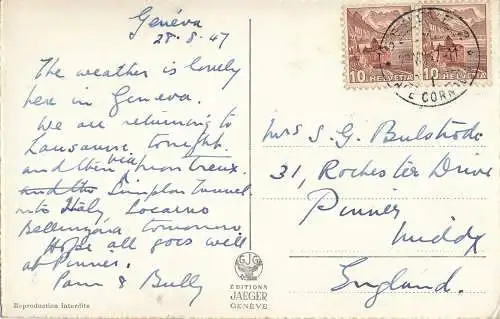 Genéva
28.8.47
The weather is lovely
here in Geneva.
We are returning to
Lausanne tonight.
and then via Montreux
Simplon Tunnel
into Italy, Locarno
Bellinzona tomorrow
Hope all goes well
at Pinner.
Pam & Bully
HELVETIA
10
HELVETIA
10
GENÈVE 2
CORN
Mrs S. G. Bulstrode
31, Rochester Drive
Pinner
Middx
England.
JG
EDITIONS
JAEGER
GENÈVE
Reproduction Interdite